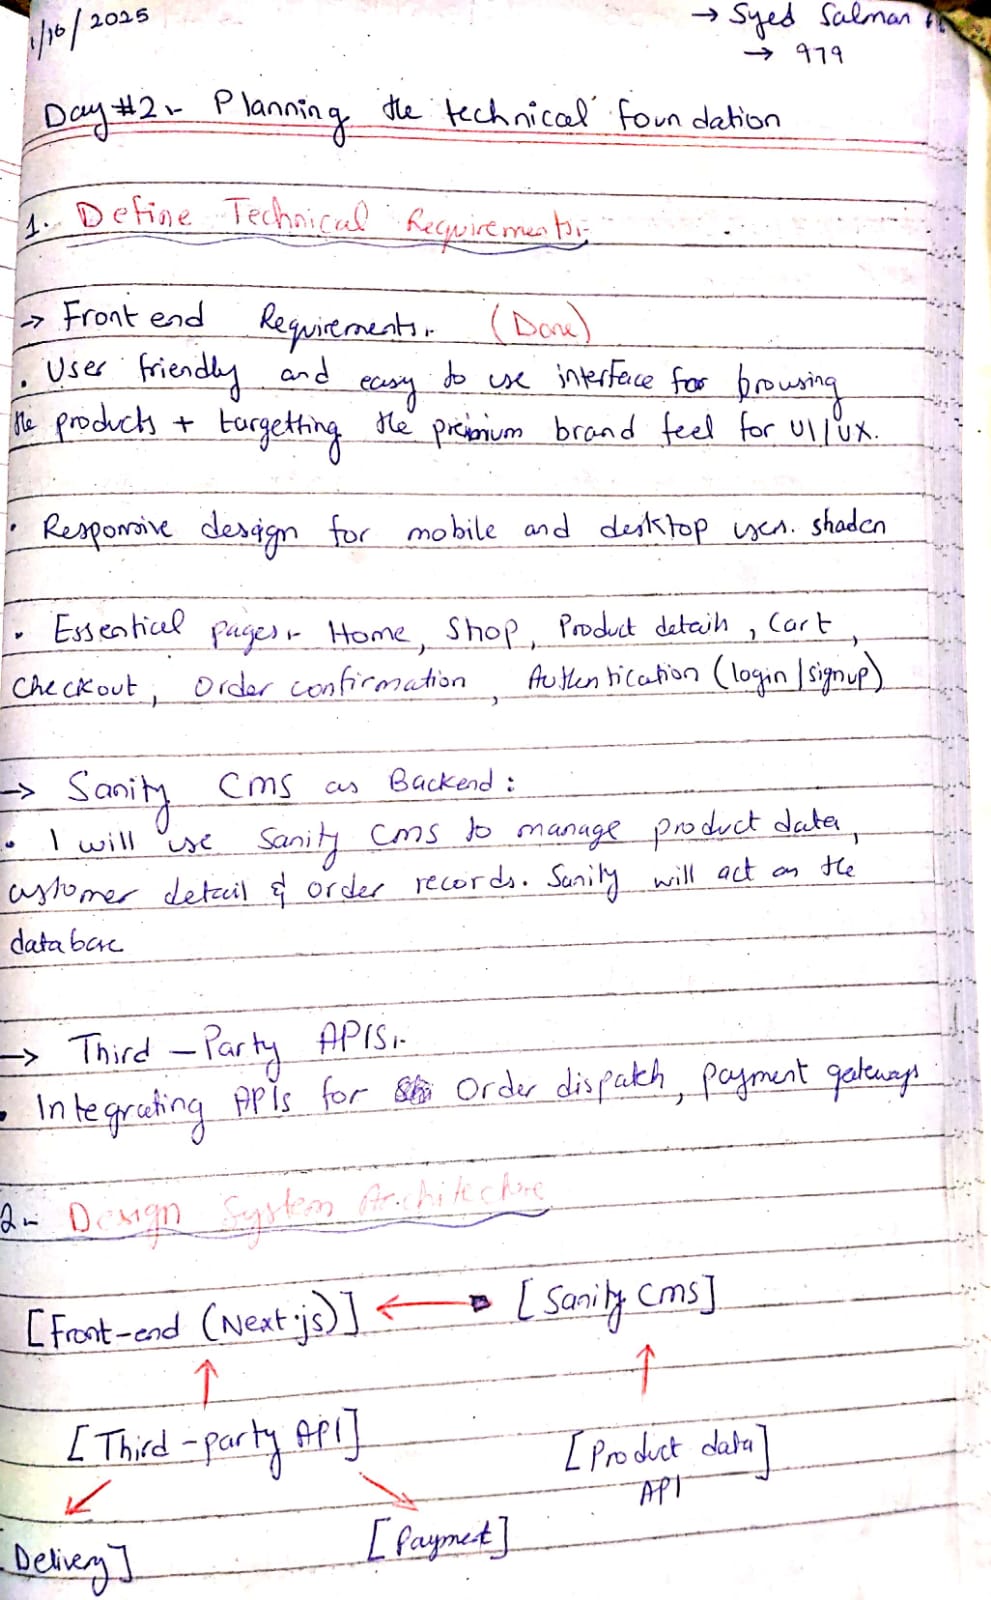 1/16/2025
→ Syed Salman
→ 979
Day #2:- Planning the technical foundation
1. Define Technical Requirements:-
→ Front end Requirements:- (Done)
• User friendly and easy to use interface for browsing
the products + targetting the premium brand feel for UI/UX.
• Responsive design for mobile and desktop users. shadcn
• Essential pages:- Home, Shop, Product details, Cart,
checkout, Order confirmation, Authentication (login/signup)
→ Sanity CMS as Backend:
• I will use Sanity CMS to manage product data,
customer detail & order records. Sanity will act as the
database
→ Third-Party APIs:-
• Integrating APIs for Order dispatch, payment gateways
2- Design System Architecture
[Front-end (Next.js)] ← [Sanity CMS]
↑ ↑
[Third-party API] [Product data]
API
Delivery] [Payment]